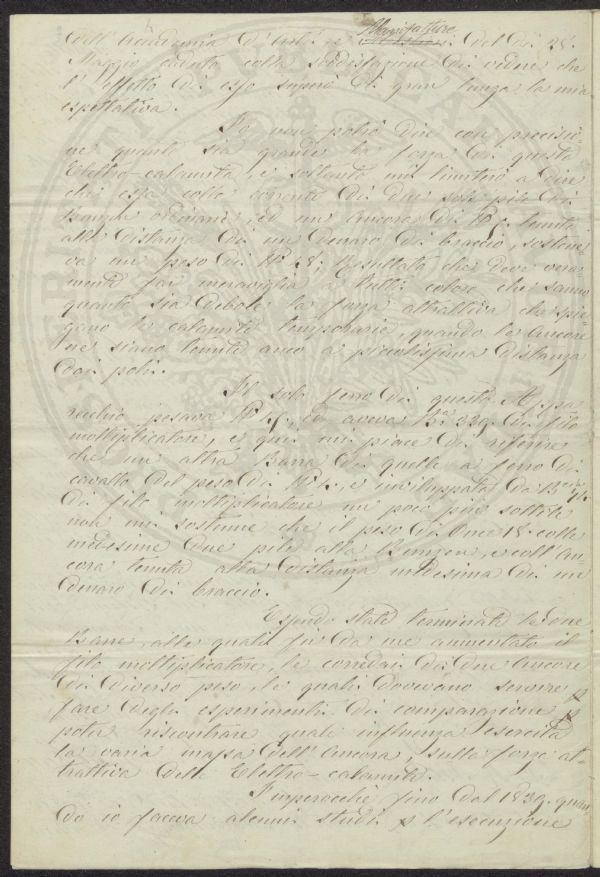 dell'Accademia d'Arti e Manifatture del dì 28.
Maggio caduto colla sodisfazione di vedere che
l'effetto di esso superò di gran lunga la mia
espettativa.
Io non potrò dire con precisio-
ne quanto sia grande la forza di questa
Elettro-calamita, e soltanto mi limiterò a dire
che essa colla corrente di due sole pile di
Bunzen ordinarie, ed un'ancora di
alla distanza di un denaro di braccio, sostene-
va un peso di 28; Resultato che deve vera-
mente far meraviglia a tutti coloro che sanno
quanto sia debole la forza attrattiva che spie-
gano le calamite temporarie, quando le ancore
ne siano tenute anco a piccolissima distanza
dai poli.
Il solo ferro di questo Appa-
recchio pesava ed aveva 229. di filo
moltiplicatore, e qui mi piace di riferire
che un'altra Barra di quelle a ferro di
cavallo del peso di e inviluppata da
di filo moltiplicatore un poco più sottile
non mi sostenne che il peso di Once 18. colle
medesime due pile alla Bunzen, e coll'an-
cora tenuta alla distanza medesima di un
denaro di braccio.
Essendo state terminate le due
Barre, alle quali fu da me aumentato il
filo moltiplicatore, le corredai di due ancore
di diverso peso, le quali dovevano servire
fare degli esperimenti di comparazione
poter riscontrare quale influenza esercita
la varia massa dell'ancora, sulla forza at-
trattiva delle Elettro-calamite.
Imperocchè fino dal 1839. quan-
do io faceva alcuni studi l'esecuzione